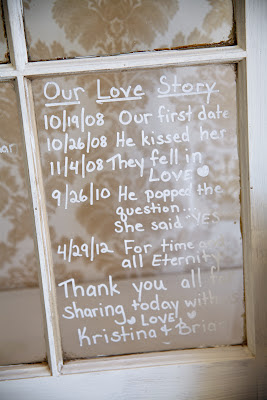 Our Love Story
10/19/08 Our first date
10/26/08 He kissed her
11/4/08 They fell in
LOVE
9/26/10 He popped the
question...
She said "YES
4/29/12 For time
all Eternity
Thank you all
sharing today
LOVE,
Kristina & Brian